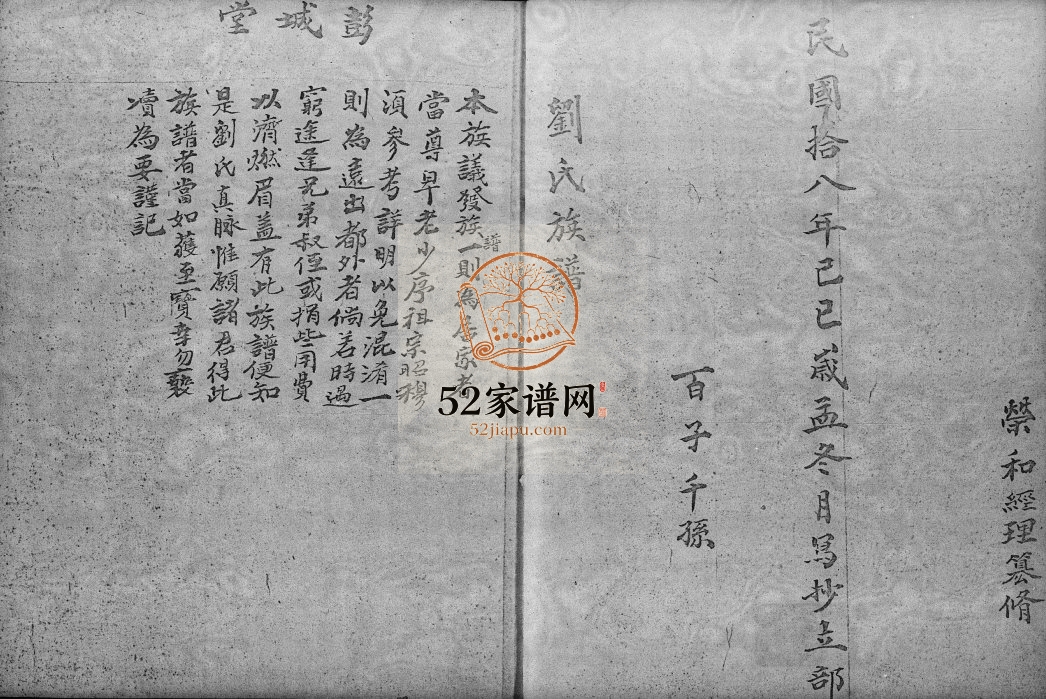 榮和經理纂脩
民國拾八年己巳歲孟冬月馬抄立部
百子千孫
劉氏族譜
彭城堂
本族議發族譜一則為居家者
當尊卑老少序祖宗昭穆
須參考詳明以免混淆一
則為遠出都外者倘若時過
窮途逢兄弟叔侄或捐些用費
以濟燃眉盖有此族譜便知
是劉氏真脉惟願諸君得此
族譜者當如獲至寶幸勿褻
瀆為要謹記
52家谱网
52jiapu.com